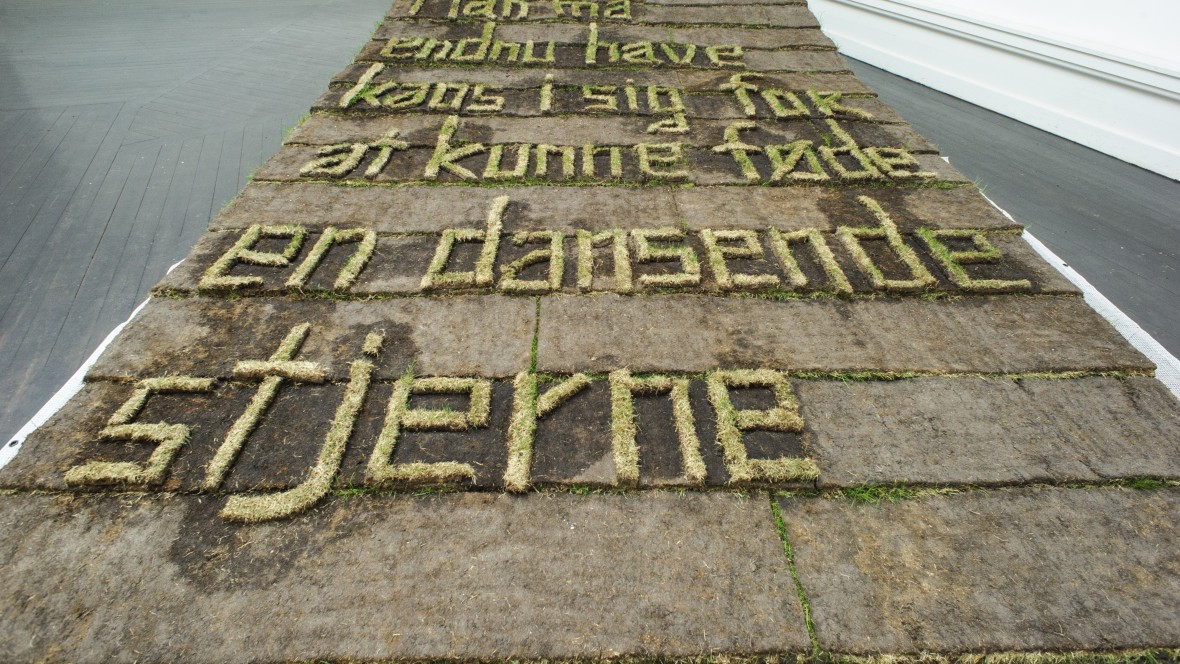 Man må
endnu have
kaos i sig for
at kunne føde
en dansende
stjerne